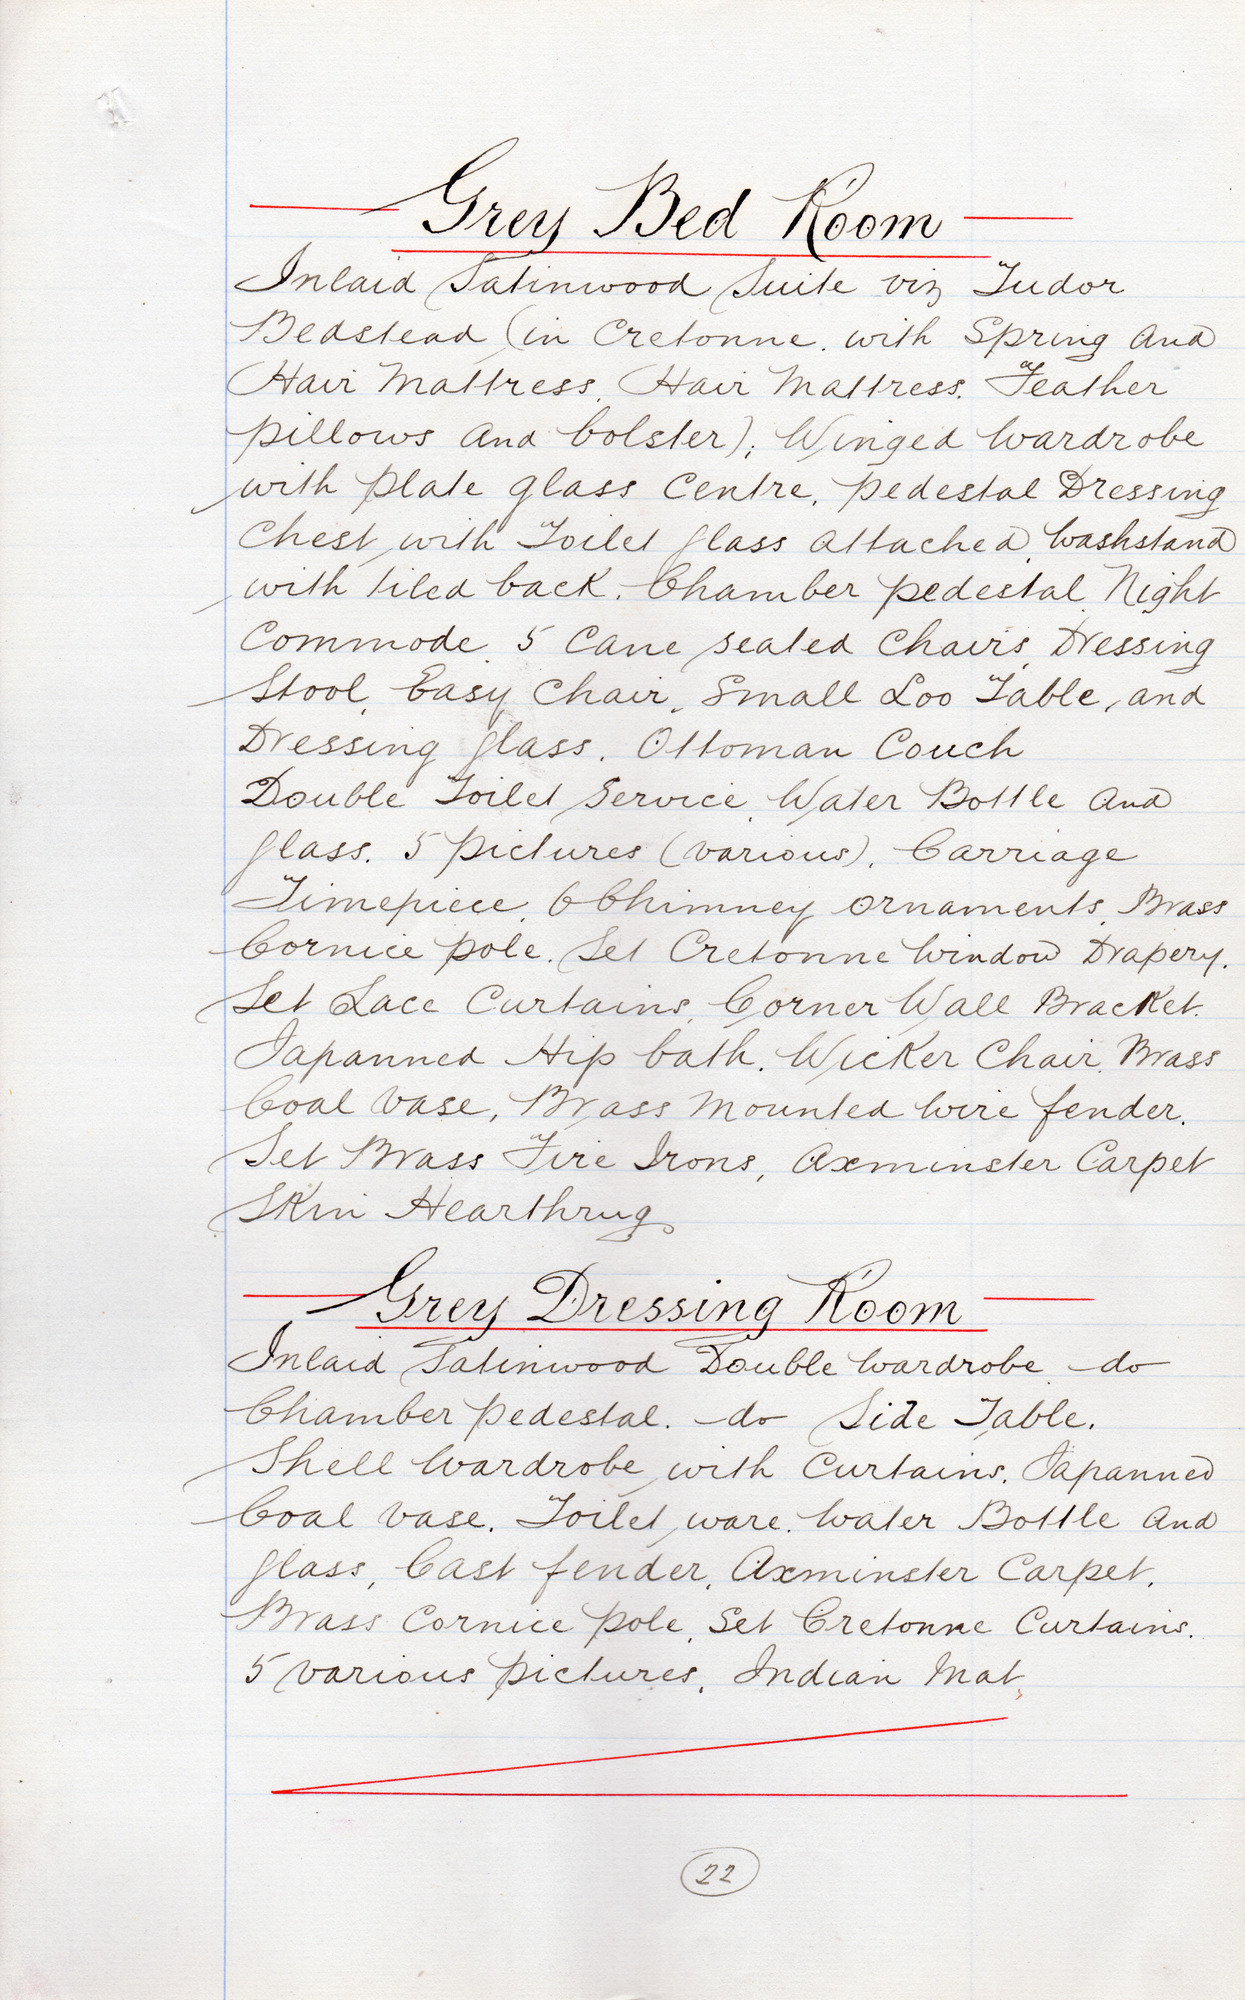 Grey Bed Room
Inlaid Satinwood Suite viz Tudor
Bedstead (in Cretonne. with Spring and
Hair Mattress, Hair Mattress. Feather
pillows and bolster); Winged Wardrobe
with plate glass Centre, pedestal Dressing
Chest with Toilet glass attached, Washstand
with tiled back. Chamber pedestal, Night
Commode, 5 Cane seated Chairs, Dressing
Stool, Easy Chair, Small Loo Table, and
Dressing glass. Ottoman Couch
Double Toilet Service, Water Bottle and
glass. 5 pictures (various), Carriage
Timepiece, 6 Chimney ornaments, Brass
Cornice pole. Set Cretonne Window Drapery.
Set Lace Curtains, Corner Wall Bracket.
Japanned Hip bath. Wicker Chair, Brass
Coal Vase, Brass Mounted Wire fender.
Set Brass Fire Irons, Axminster Carpet
Skin Hearthrug
Grey Dressing Room
Inlaid Satinwood Double Wardrobe, do
Chamber pedestal. do Side Table.
Shell Wardrobe with Curtains. Japanned
Coal Vase. Toilet ware. Water Bottle and
glass, Cast fender, Axminster Carpet.
Brass Cornice pole, Set Cretonne Curtains.
5 various pictures, Indian Mat,
22